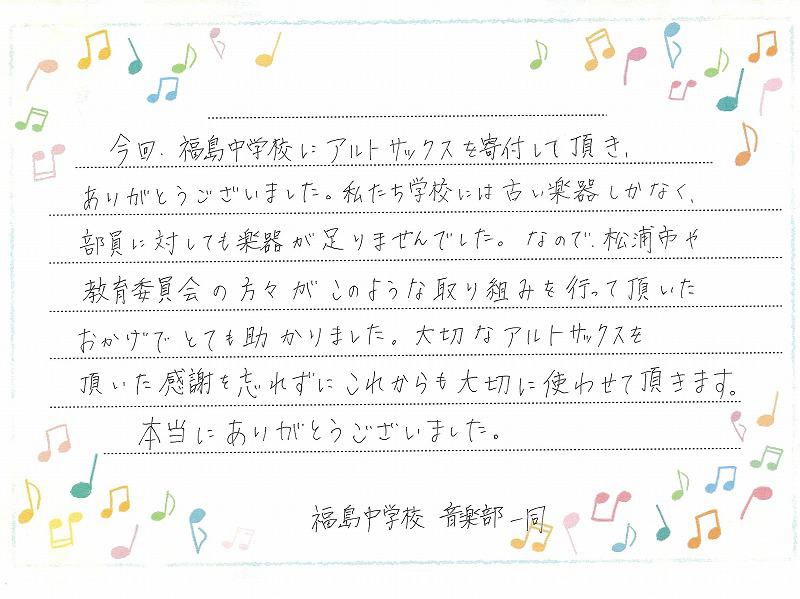 今回、福島中学校にアルトサックスを寄付して頂き、
ありがとうございました。私たち学校には古い楽器しかなく、
部員に対しても楽器が足りませんでした。なので、松浦市や
教育委員会の方々がこのような取り組みを行って頂いた
おかげでとても助かりました。大切なアルトサックスを
頂いた感謝を忘れずにこれからも大切に使わせて頂きます。
本当にありがとうございました。
福島中学校 音楽部一同